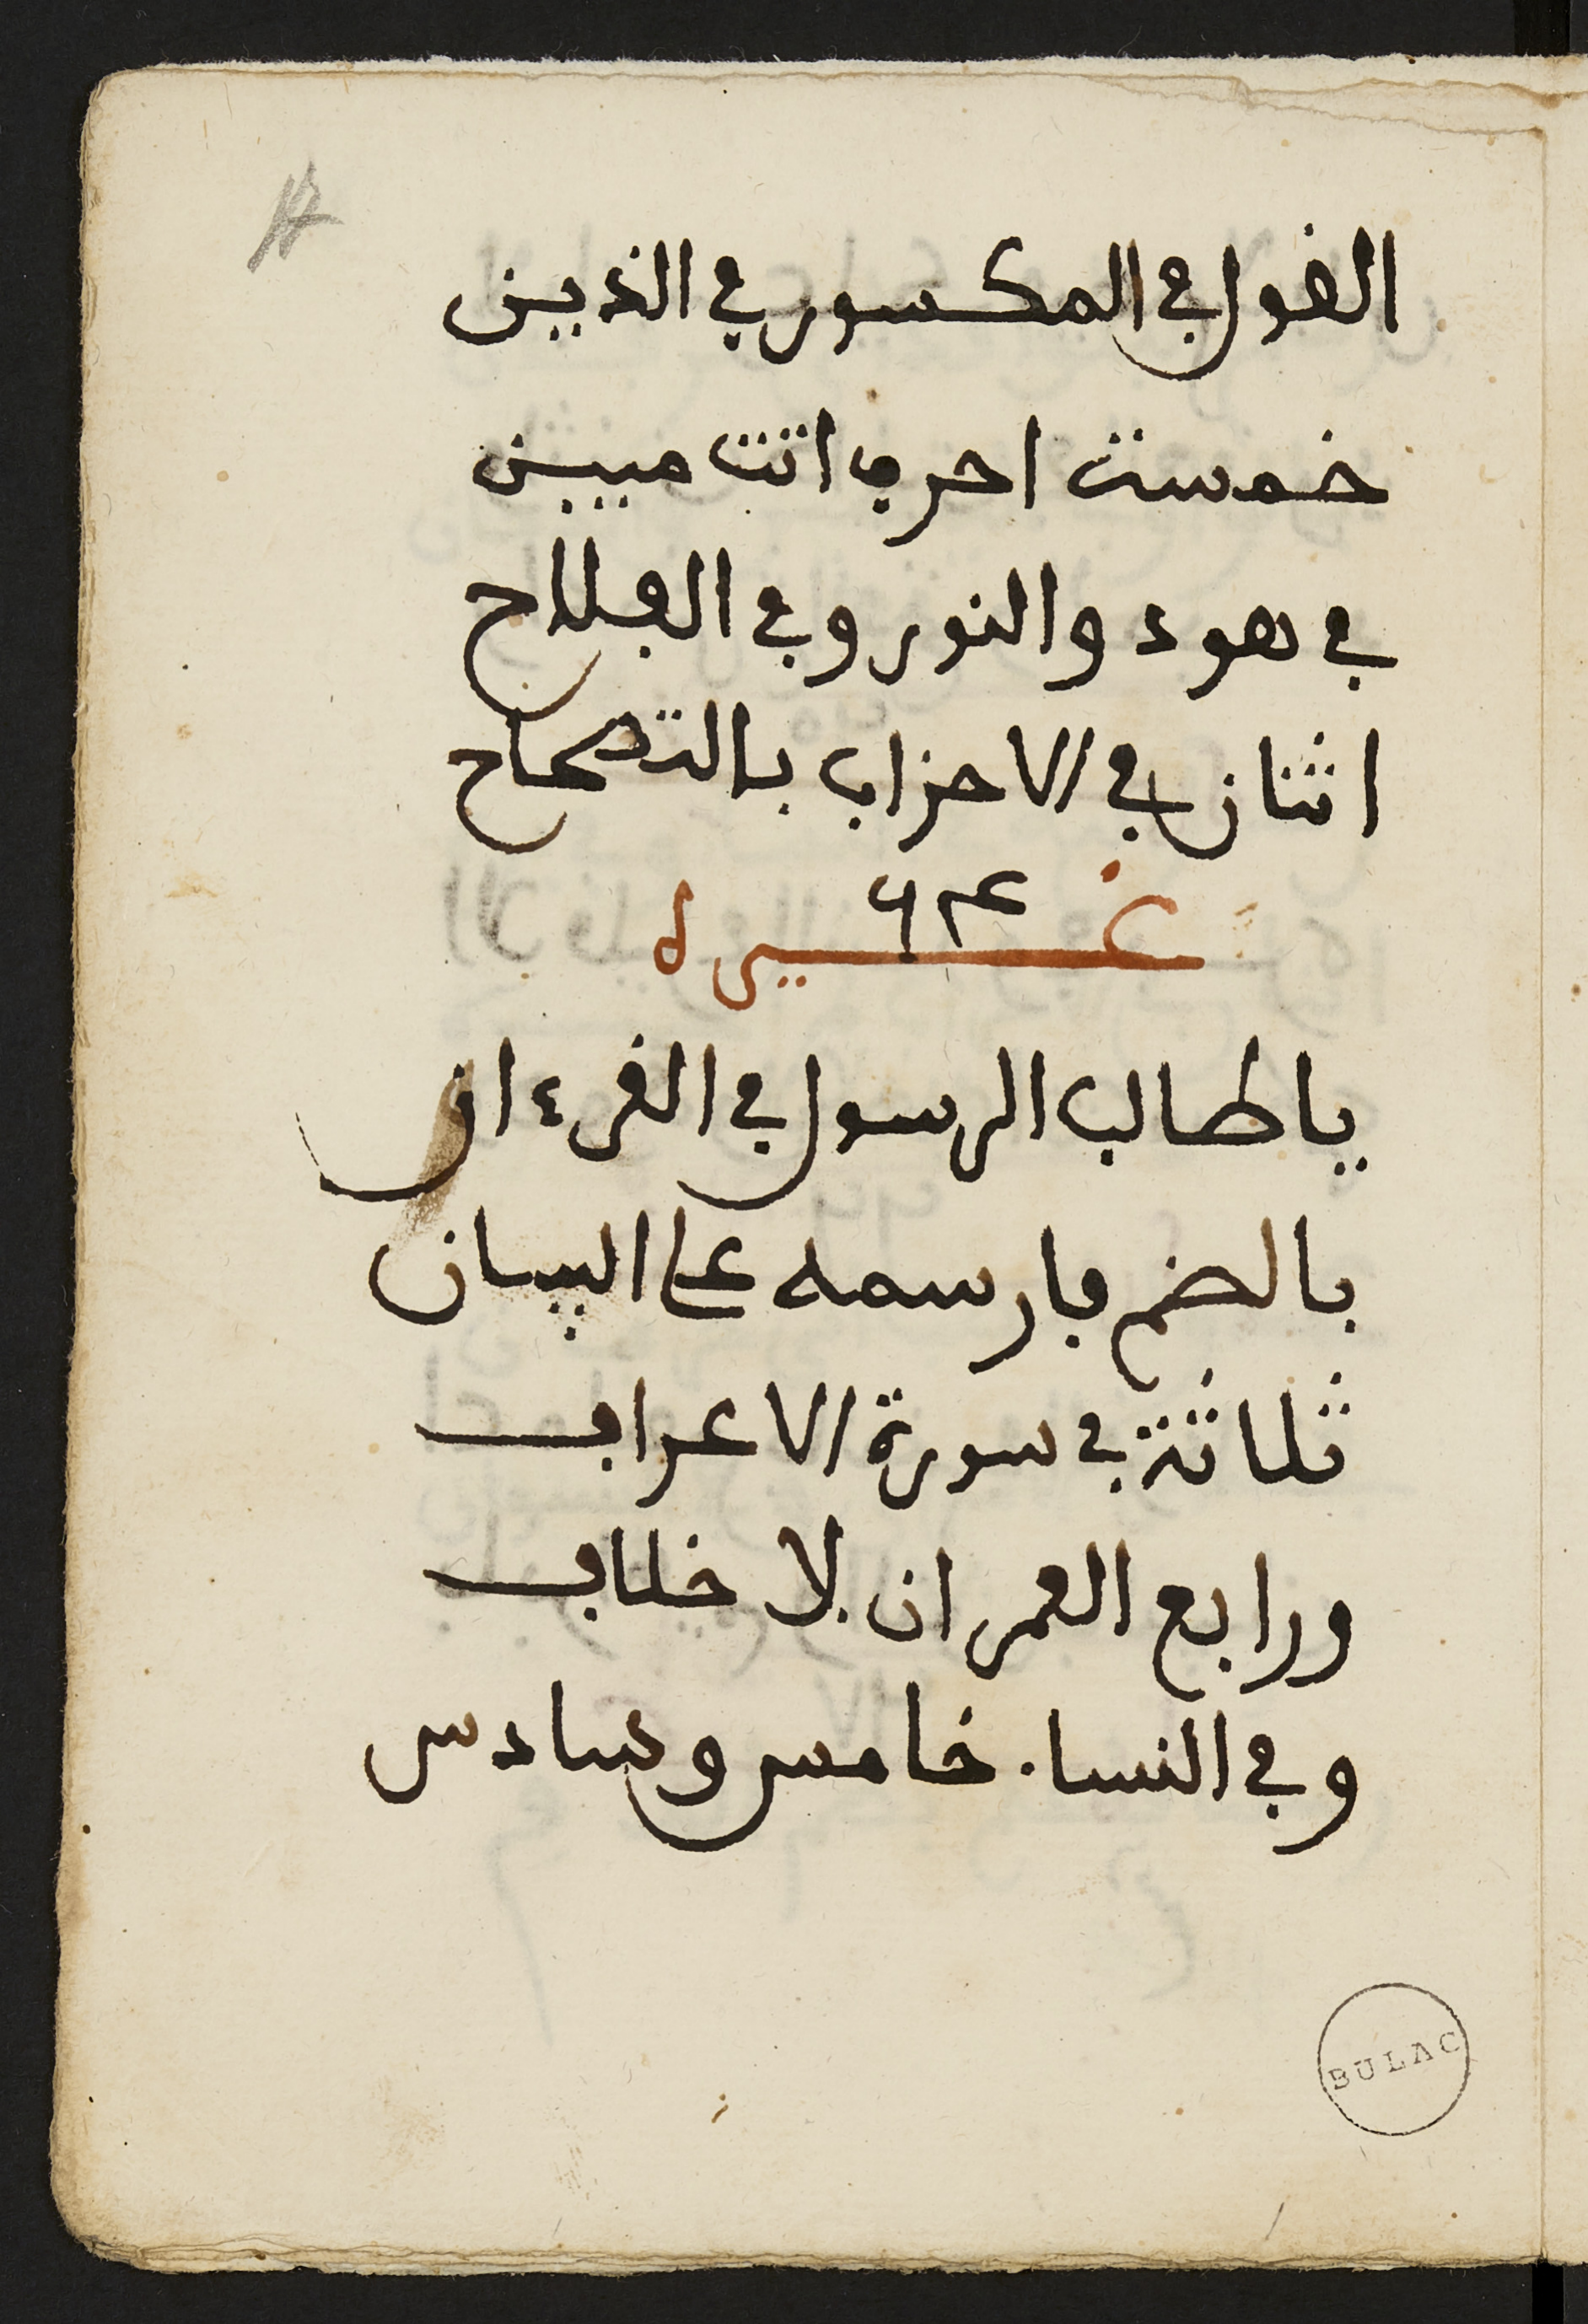 القول في المكسور في الذين
خمست احرف اتت مبين
في هود والنور وفي الفلاح
اثنان في الاحزاب بالتصحاح
غيره
يا طالب الرسول في القرءان
بالضم فارسمه على البيان
ثلاثة في سورة الاعراف
ورابع العمران بلا خلاف
وفي النسا. خامس وسادس
BULAC